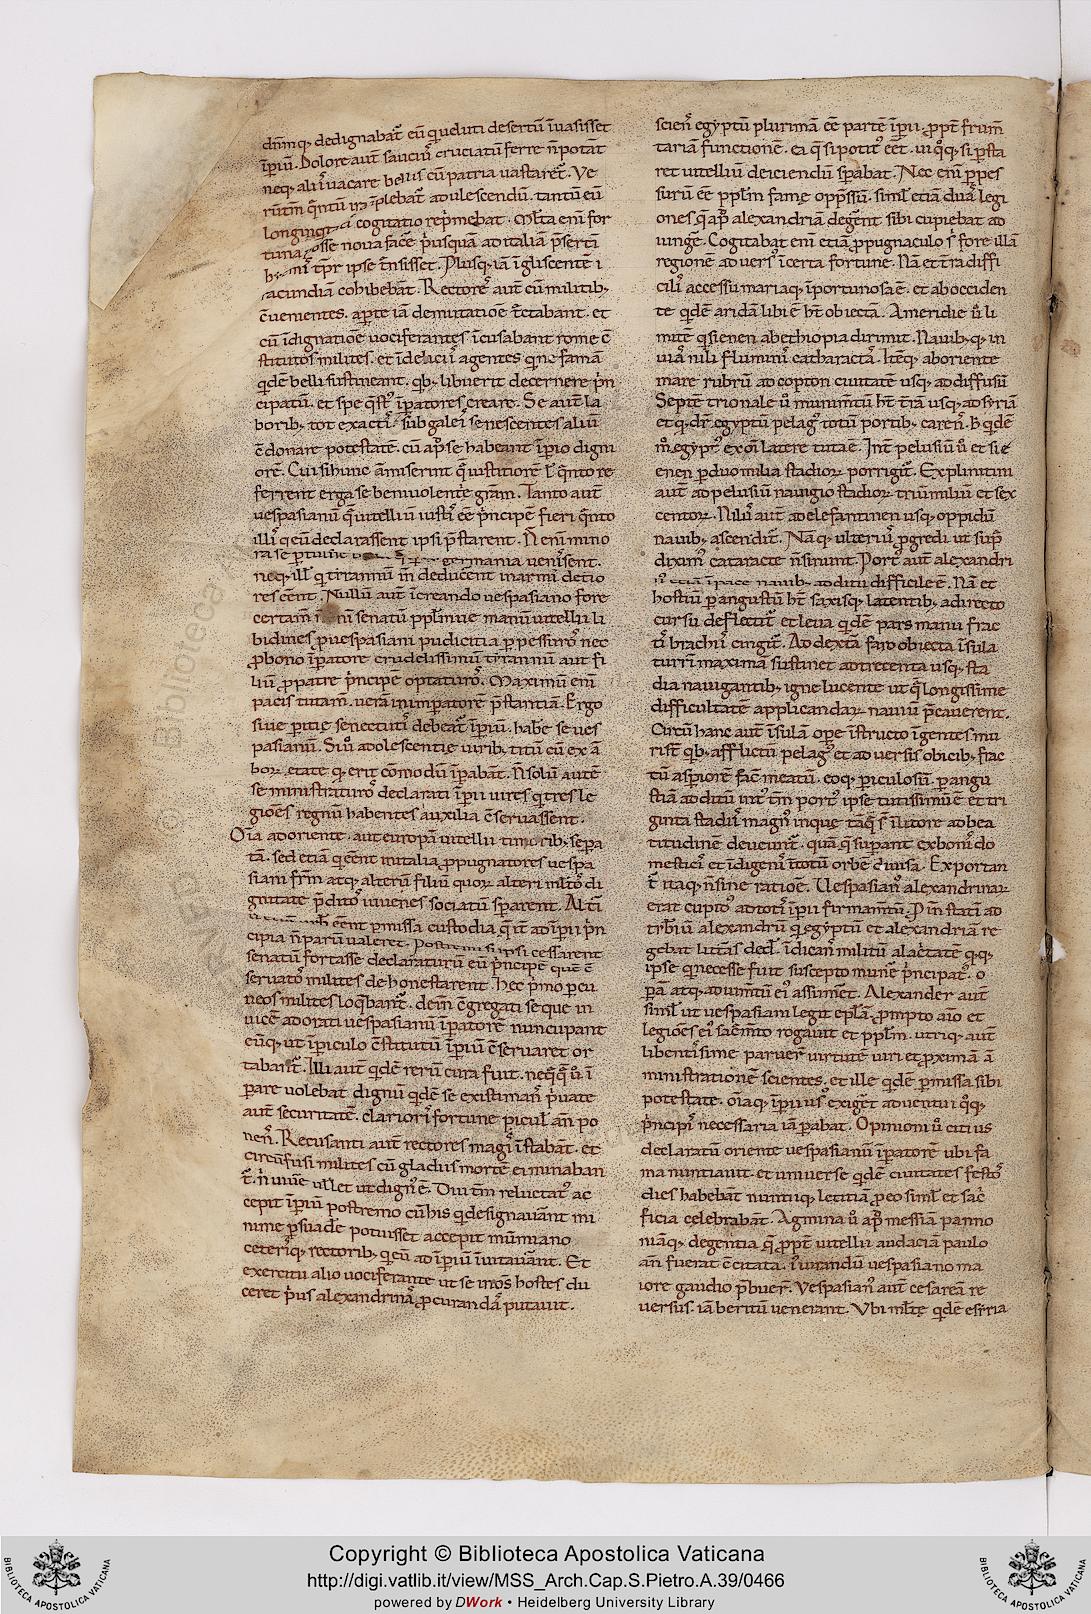 dn̄m q; dedignabat᷑ eū q̇ ueluti desertū īuasisset
īp̄iū. Dolore aut̄ sauciꝰ cruciatū ferre n̄ potat̄
neq; aliiꝰ uacare bellis cū patria uastaret᷑. Ve
longinq̇t̄ a cogitatio rep̄mebat. Ml̄ta eni̅ for
tuna posse noua facē p̄usquā ad italiā p̄serti̅
tp̄r ipse t̄nsisset. Plusq; iā ī gliscentē i
racundiā cohibebāt. Rectoreſ aut̄ cū militib;
c̄uenientes. aꝑte iā de mutatiōe t̄ctabant. et
cū īdignatiōe uociferantes īcusabant rome c̄
stitutos milites. et ī deliciis agentes qui ne famā
q̇dē belli sustineant. qb; libuerit decernere p̄n
cipatū. et spe q̄stꝰ īp̄atores creare. Se aut̄ la
borib; tot exacti. sub galeis senescentes aliū
c̄donare potestatē. cū ap̄ se habeant īp̄io digni
orē. Cui si hunc āmiserint q̄ iustitiorē l̄ q̇nto re
ferrent erga se beniuolentie grām. Tanto aut̄
uespasianū q̄ uitelliū iustiꝰ ēē p̄ncipē fieri q̇nto
illiꝰ q̇ eū declarassent ipsi p̄starent. N̄ eni̅ mino
germania uenisent.
neq; ill̄ q̇ tirannū īn deducent in armis detio
res cēnt. Nullū aut̄ ī creando uespasiano fore
certam senatū pp̄lm ue manū uitellii li
bidines ꝓ uespasiani pudicitia ꝑ pessimo nec
ꝓ bono īp̄atore crudelissimū tirannū aut fi
liū ꝓ patre p̄ncipe optaturos. Maximū eni̅
pacis tutam̄. uerā in imperatore p̄stantiā. Ergo
siue ꝑitie senectutis debeat᷑ īp̄iū. hab̄e se ues
pasianū. Siuꝰ adolescentie uirib; titū eū ex ā
boꝝ etate q̇ erit cōmodū īp̄abant. N̄ solū autē
se ministraturos declarati īp̄ii uires q̇ tres le
gioēs regnū habentes auxilia c̄seruassent.
Oīa ad oriente. aut europam uitellii timorib; seꝑa
ta. sed etiā q̇ eent in italia ꝓpugnatores uespa
siani fr̄m atq; alterū filiū quoꝝ alteri ml̄tos di
gnitate p̄ditos iuuenes sociatū sꝑarent. Alt̄i
eent ꝑmissā custodia q̄ īt ad īp̄ii p̄n
cipia n̄ parū ualeret. Postremo si ipsi cessarent
senatū fortasse declaraturū eū p̄ncipē quē c̄
seruatos milites dehonestarent. Hec p̄mo ꝑ cu
neos milites loq̄bant᷑. dein̄ c̄gregati seque in
uicē adorati uespasianū īp̄atorē nuncupant
eūq; ut īꝑiculo c̄stitutū īp̄iū c̄seruaret or
tabant᷑. Illi aut̄ q̇dē rerū cura fuit. neq̄q̄ ů̄ ī
ꝑare uolebat dignū q̇dē se existimans p̄uate
aut̄ securitatē. clarioris fortune ꝑiculis an̄ po
nens. Recusanti aut̄ rectores magis īstabāt. et
circūfusi milites cū gladiis mortē ei minaban
t᷑. n̄ uiuē uellet ut dignꝰ ē. Diu t̄m reluctatꝰ ac
cepit īp̄iū postremo cū his q̇ designauāt mi
nime ꝑsuadē potuisset accepit mūniano
ceterisq; rectorib; q̇ eū ad īp̄iū īuitauāt. Et
exercitu alio uociferante ut se in oēs hostes du
ceret p̄us alexandrinā ꝓcurandā putauit.
sciens egyptū plurimā ēē partē īp̄ii. ꝓpt̄ frum̄
tariā functionē. ea q̄ si potitꝰ eet. ui q̄q; si ꝑsta
ret uitelliū deiciendū sꝑabat. Nec eni̅ ꝑpes
surū ēē pp̄lm famē opp̄ssū. simul etiā duas legi
ones q̄ ap̄ alexandriā degēnt sibi cupiebat ad
iungē. Cogitabat eni etiā ꝓpugnaculo s̄ fore illā
regionē aduersꝰ īcerta fortune. Nā et t̄ra diffi
cilis accessu mariaq; īportunosa ē. et ab occiden
te q̇dē aridā libiē ht̄ obiectā. A meridie ů̄ li
mitē q̇ sienen ab ethiopia dirimit. Nauib; q; in
uiāꝰ nili fluminis catharactā. Itēq; ab oriente
mare rubrū ad copton ciuitatē usq; ad diffusū
Septētrionale ů̄ munim̄tū ht̄ t̄rā usq; ad syriā
et q̇ dr̄ egyptū pelagꝰ totū portib; carens. B q̇dē
mꝰ egyptꝰ ex oi̅ latere tuta ē. Int̄ pelusiū ů̄ et sie
enen ꝑ duo milia stadioꝝ porrigit᷑. Ex plinitim
aut̄ ad pelusiū nauigio stadioꝝ triū miliū et sex
centoꝝ. Nilus aut̄ ad elefantinen usq; oppidū
nauib; ascendit᷑. Nāq; ulteriꝰ ꝓgredi ut sup̄
diximꝰ cataracte n̄ sinunt. Portꝰ aut̄ alexandri
nꝰ etiā ī pace nauib; aditu difficile ē. Nā et
hostiū ꝑangustū ht̄ saxisq; latentib; a directo
cursu deflectit᷑ et leua q̇dē pars manu frac
tis brachiis cingit᷑. Ad dextā faro obiecta īsula
turrim maximā sustinet ad trecenta usq; sta
dia nauigantib; igne lucente ut q̄ longissime
difficultatē applicandarū nauiū p̄cauerent.
Circū hanc aut̄ īsulā ope īstructo īgentes mu
ri st̄ qb; afflictū pelagꝰ et aduersis obicib; frac
tū asꝑiorē facit meatū. eoq; ꝑiculosū. ꝑ angu
stiā aditū int̄ t̄m portꝰ ipse tutissimus ē et tri
ginta stadiis magnꝰ inque tāq̄ s̄ ī litore ad bea
titudinē deueit᷑. quā q̄ suꝑant exbonis do
mesticis et īdigenis ī totū orbē diuisa. Exportan
t᷑ itaq; n̄ sine ratioē. Uespasianꝰ alexandrinaꝝ
erat cupitoꝰ ad totiꝰ īp̄ii firmam̄tū. P in statī ad
tribiū alexandrū q̇ egyptū et alexandriā re
gebat litt̄as decl̄. īdicans militū alac̄tatē q; q;
ipse q̇ necesse fuit suscepto munē p̄ncipatꝰ. o
ꝑā atq; adiuuītū eiꝰ assum̄et. Alexander aut̄
simul ut uespasiani legit ep̄lā. ꝓmpto aīo et
legiōes eiꝰ sac̄m̄to rogauit et pp̄lm. utriq; aut̄
libentissime paruer̄ uirtutē uiri et ꝓximā ā
ministrationē scientes. et ille q̇dē ꝑmissa sibi
potestate. oīaq; īp̄ii usꝰ exigēt aduentui q̄q;
p̄ncipis necessaria iā ꝑabat. Opinioni ů̄ citius
declaratū oriente uespasianū īp̄atorē ubi fa
ma nuntiauit. et uniuerse q̇dē ciuitates festos
dies habebāt nuntiiq; letitiā ꝓ eo siml̄ et sac̄
ficia celebrabāt. Agmina ů̄ ap̄ messiā panno
niāq; degentia q̄ ꝓpt̄ uitellii audaciā paulo
an̄ fuerat c̄citata. iꝰiurandū uespasiano ma
iore gaudio p̄buer̄. Vespasianꝰ aut̄ cesareā re
uersus. iā beritū uenerant. Vbi ml̄tę q̇dē e syria
Copyright © Biblioteca Apostolica Vaticana
http://digi.vatlib.it/view/MSS_Arch.Cap.S.Pietro.A.39/0466
powered by DWork • Heidelberg University Library
BIBLIOTECA APOSTOLICA VATICANA
BIBLIOTECA APOSTOLICA VATICANA